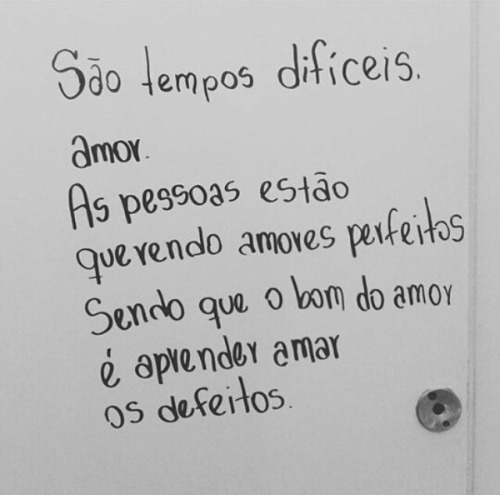 São tempos difíceis.
amor.
As pessoas estão
querendo amores perfeitos
Sendo que o bom do amor
é aprender amar
os defeitos.